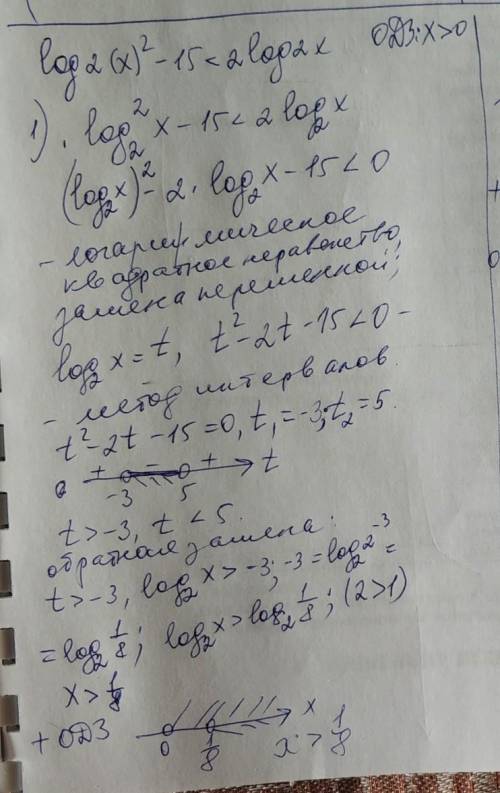 log2(x)² - 15 < 2log2x   ОДЗ: x>0
1). log₂²x - 15 < 2log₂x
(log₂x)² - 2·log₂x - 15 < 0
- логарифмическое
квадратное неравенство,
замена переменной;
log₂x = t, t² - 2t - 15 < 0 -
- метод интервалов.
t² - 2t - 15 = 0, t₁ = -3; t₂ = 5.
+ - + t
-3 5
t > -3, t < 5.
обратная замена:
t > -3, log₂x > -3; -3 = log₂2⁻³ =
= log₂ 1/8; log₂x > log₂ 1/8; (2>1)
x > 1/8
+ ОДЗ x
0 1/8 x > 1/8
+
0